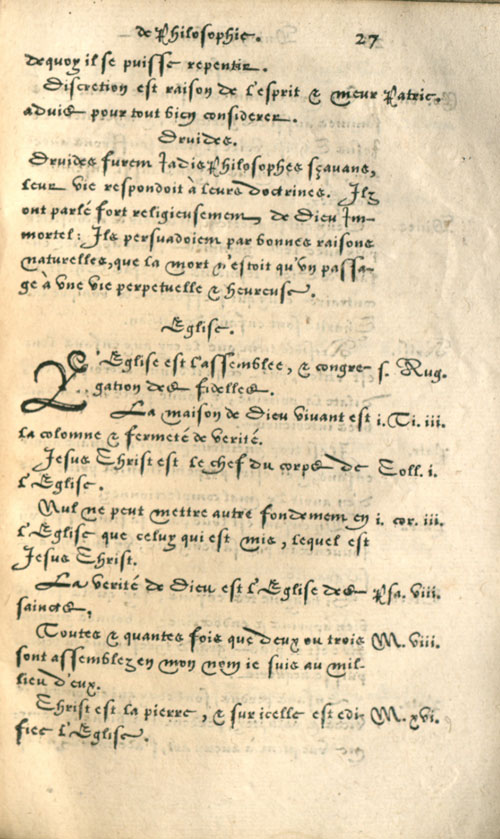 de Philosophie. 27
dequoy il se puisse repentir.
Discretion est raison de l'esprit & meur Patric.
aduis pour tout bien considerer.
Druides.
Druides furent Jadis Philosophes sçauans,
leur vie respondoit à leurs doctrines. Ilz
ont parlé fort religieusement, de Dieu Im-
mortel: Ils persuadoient par bonnes raisons
naturelles, que la mort n'estoit qu'vn passa-
ge à vne vie perpetuelle & heureuse.
Eglise.
L'Eglise est l'assemblee, & congre s. Rug.
gation des fidelles.
La maison de Dieu viuant est i. Ti. iii.
la colomne & fermeté de verité.
Jesus Christ est le chef du corps de Coll. i.
l'Eglise.
Nul ne peut mettre autre fondement en i. cor. iii.
l'Eglise que celuy qui est mis, lequel est
Jesus Christ.
La verité de Dieu est l'Eglise des Psa. viii.
saincts,
Toutes & quantes fois que deux ou trois M. viii.
sont assemblez en mon nom ie suis au mil-
lieu d'eux.
Christ est la pierre, & sur icelle est edi- M. xvi.
fiee l'Eglise.